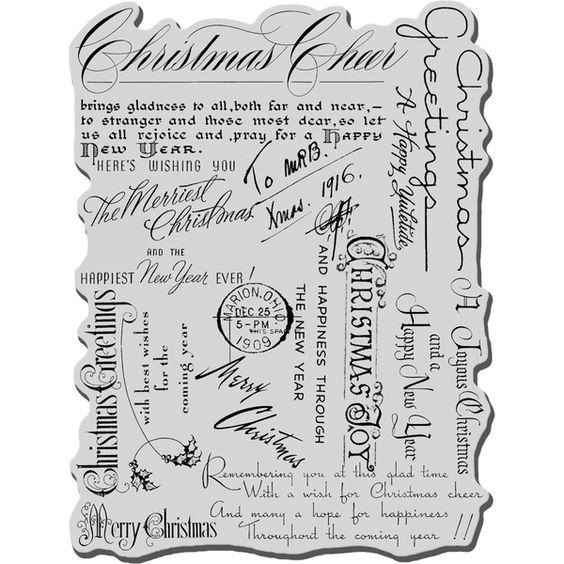 Christmas Cheer
brings gladness to all, both far and near,–
to stranger and those most dear, so let
us all rejoice and pray for a Happy
New Year.
HERE'S WISHING YOU
The Merriest
Christmas
AND THE
HAPPIEST New Year EVER!
To MRB.
Xmas. 1916.
Christmas
Greetings
A Happy Yuletide
MARION, OHIO.
DEC 25
5-PM
1909
THIS SPA
Merry
Christmas
AND HAPPINESS THROUGH
THE NEW YEAR
CHRISTMAS JOY
A Joyous Christmas
and a
Happy New Year
Christmas Greetings
with best wishes
for the
coming year
Merry Christmas
Remembering you at this glad time
With a wish for Christmas cheer
And many a hope for happiness
Throughout the coming year !!!